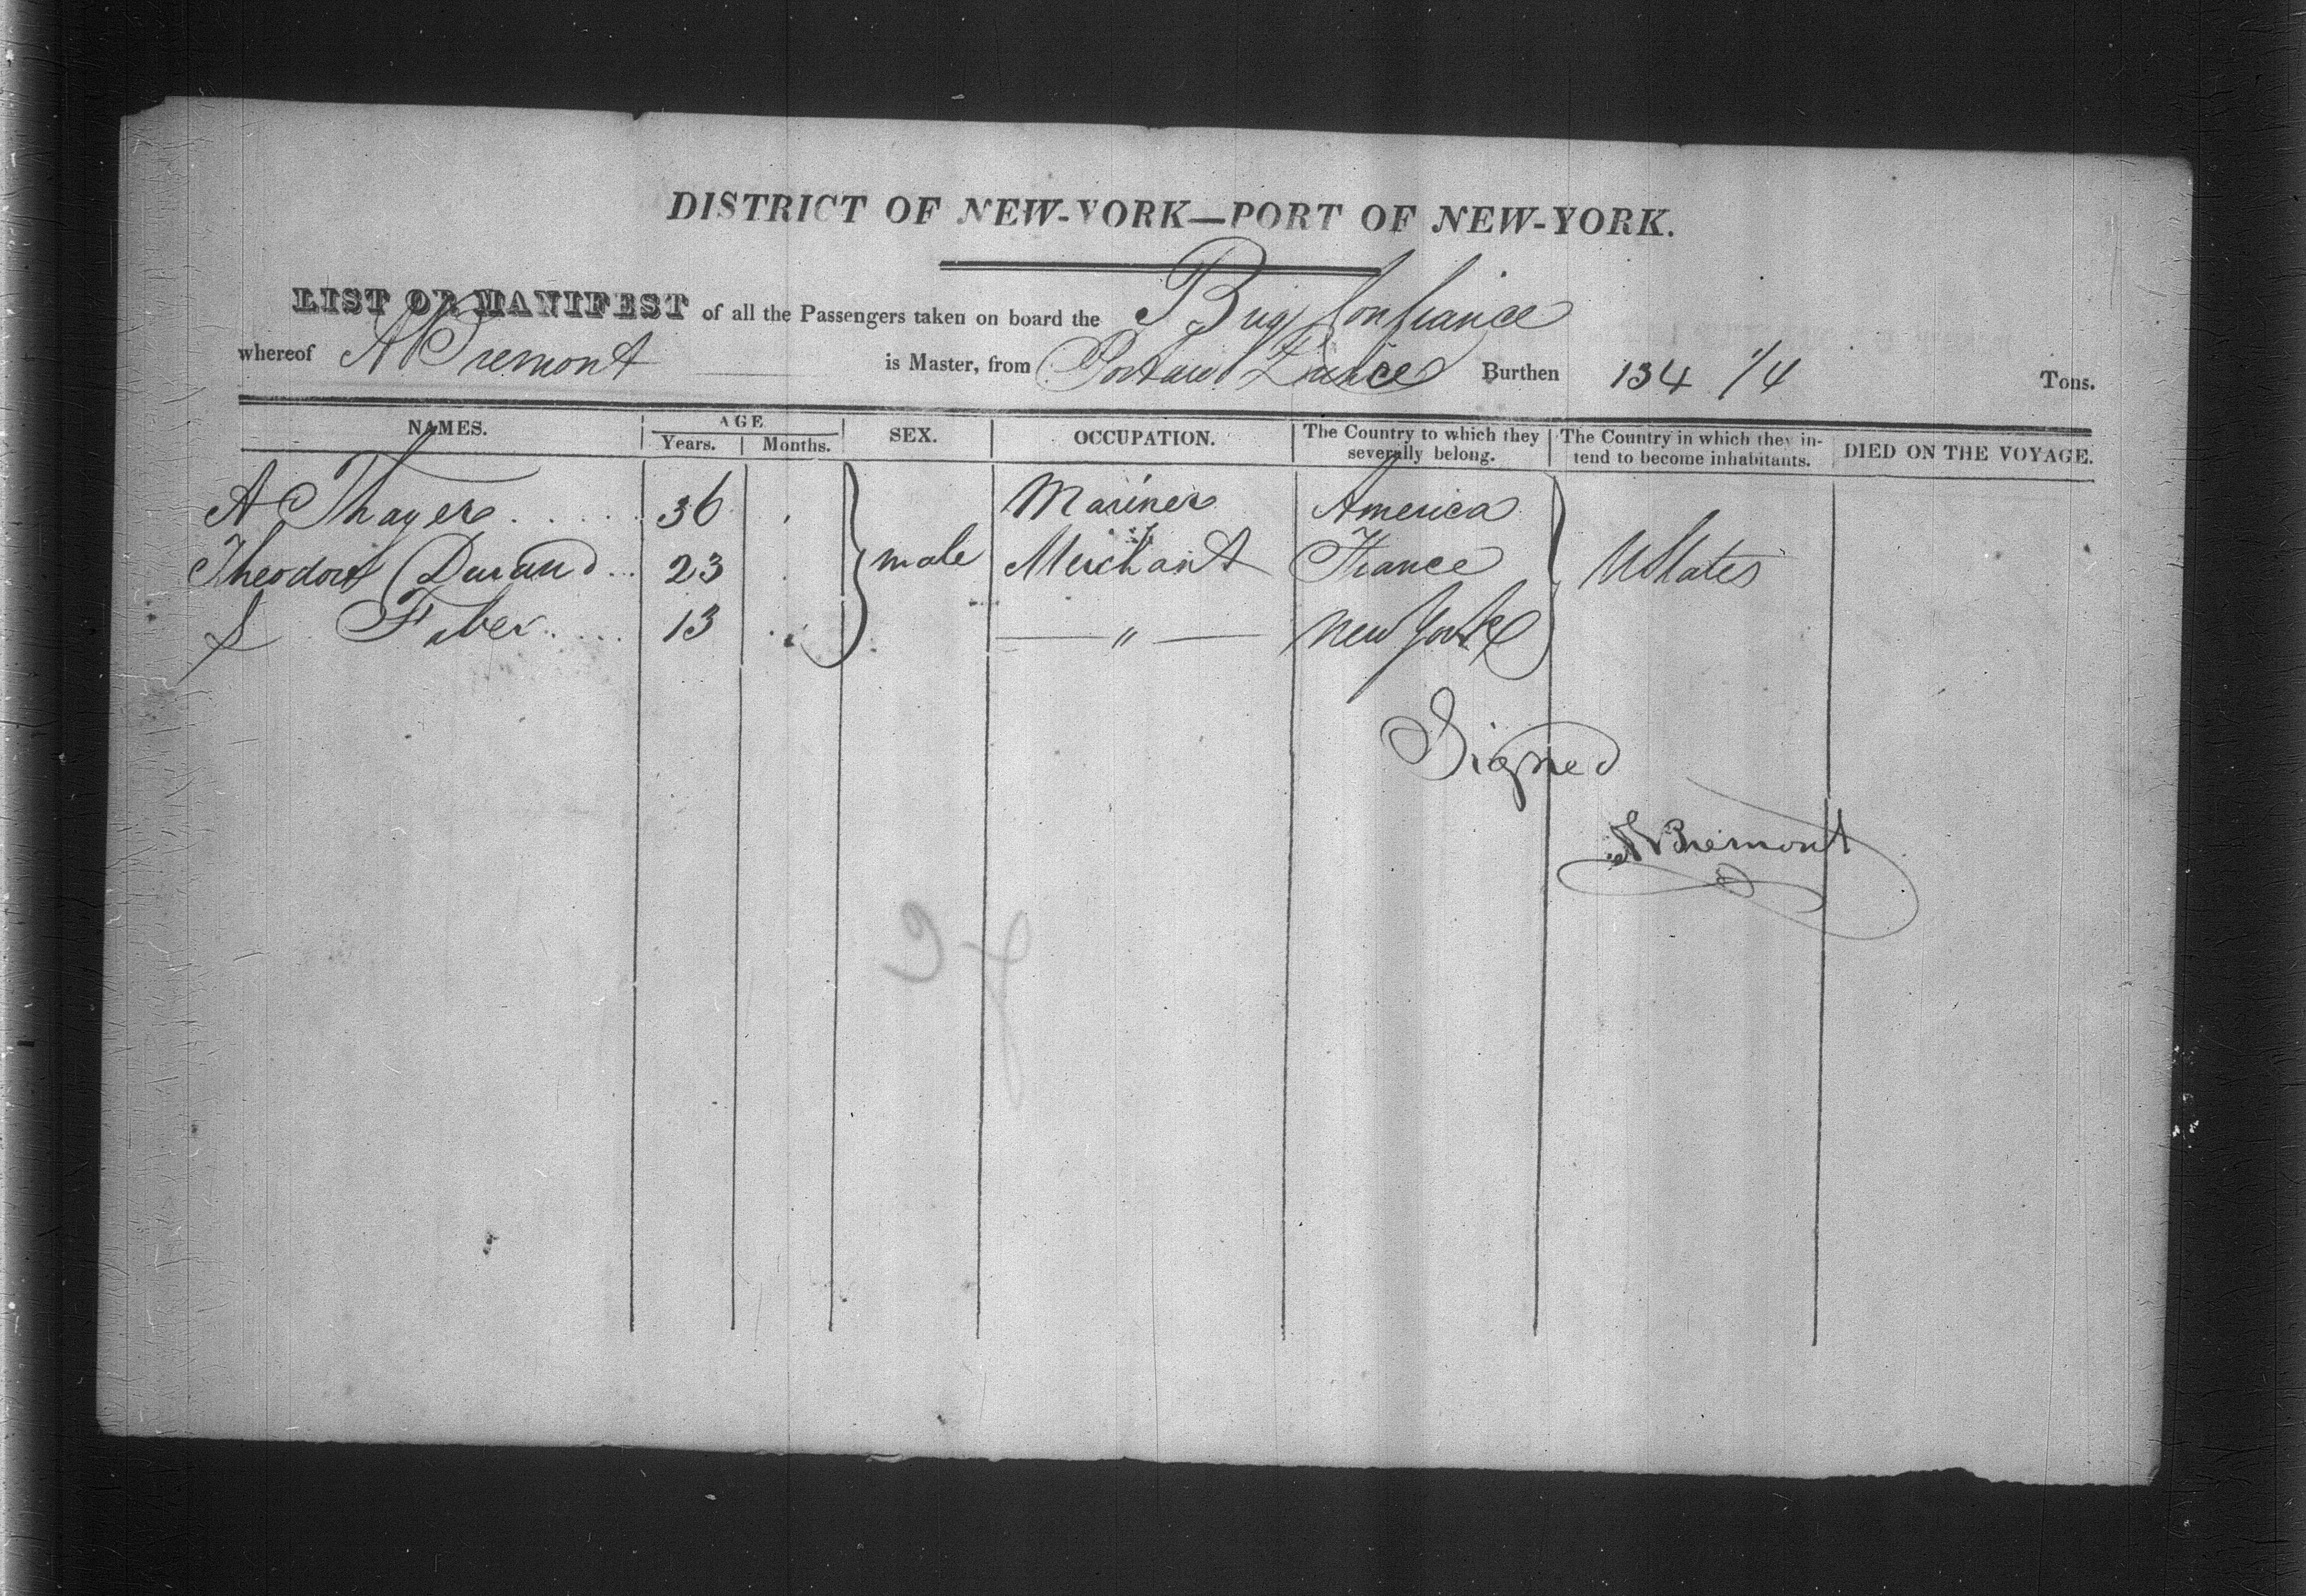 DISTRICT OF NEW-YORK—PORT OF NEW-YORK.
LIST OR MANIFEST of all the Passengers taken on board the Brig Confiance
whereof A Bremont is Master, from Portau Prince Burthen 134 1/4 Tons.
NAMES. AGE Years. Months. SEX. OCCUPATION. The Country to which they severally belong. The Country in which they intend to become inhabitants. DIED ON THE VOYAGE.
A Thayer 36 Mariner America
Theodore Durand 23 male Merchant France UStates
Faber 13 — " — New York
Signed
A Bremont